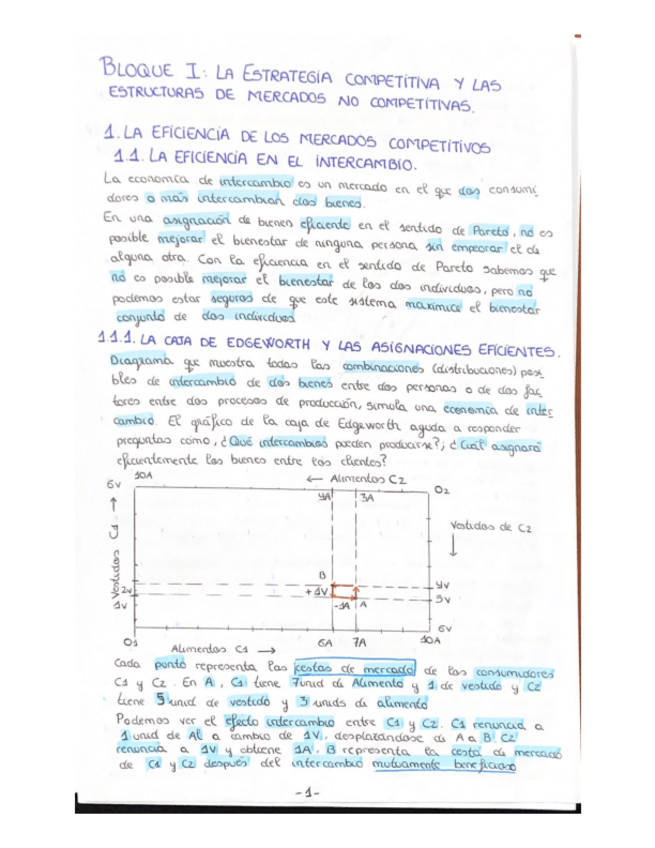 BLOQUE I: LA ESTRATEGIA COMPETITIVA Y LAS
ESTRUCTURAS DE MERCADOS NO COMPETITIVAS.
1. LA EFICIENCIA DE LOS MERCADOS COMPETITIVOS
1.1. LA EFICIENCIA EN EL INTERCAMBIO.
La economía de intercambio es un mercado en el que dos consumi
dores o más intercambian dos bienes.
En una asignación de bienes eficiente en el sentido de Pareto, no es
posible mejorar el bienestar de ninguna persona sin empeorar el de
alguna otra. Con la eficiencia en el sentido de Pareto sabemos que
no es posible mejorar el bienestar de los dos individuos, pero no
podemos estar seguros de que este sistema maximice el bienestar
conjunto de dos individuos
1.1.1. LA CAJA DE EDGEWORTH Y LAS ASIGNACIONES EFICIENTES.
Diagrama que muestra todas las combinaciones (distribuciones) posi
bles de intercambio de dos bienes entre dos personas o de dos fac
tores entre dos procesos de producción, simula una economía de inter
cambio. El gráfico de la caja de Edgeworth ayuda a responder
preguntas como, ¿Qué intercambios pueden producirse?; ¿Cuál asignará
eficientemente los bienes entre los clientes?
10A ← Alimentos C2
6V 4A 3A O2
Vestidos C1 →
Vestidos de C2 ↓
B
2V +1V 4V
1V -1A A 5V
6V
O1 Alimentos C1 → 6A 7A 10A
Cada punto representa las cestas de mercado de los consumidores
C1 y C2. En A, C1 tiene 7unid de Alimento y 1 de vestido y C2
tiene 5 unid de vestido y 3 unids de alimento
Podemos ver el efecto intercambio entre C1 y C2. C1 renuncia a
1 unid de Al a cambio de 1V, desplazándose de A a B. C2
renuncia a 1V y obtiene 1A. B representa la cesta de mercado
de C1 y C2 después del intercambio mutuamente beneficioso
-1-